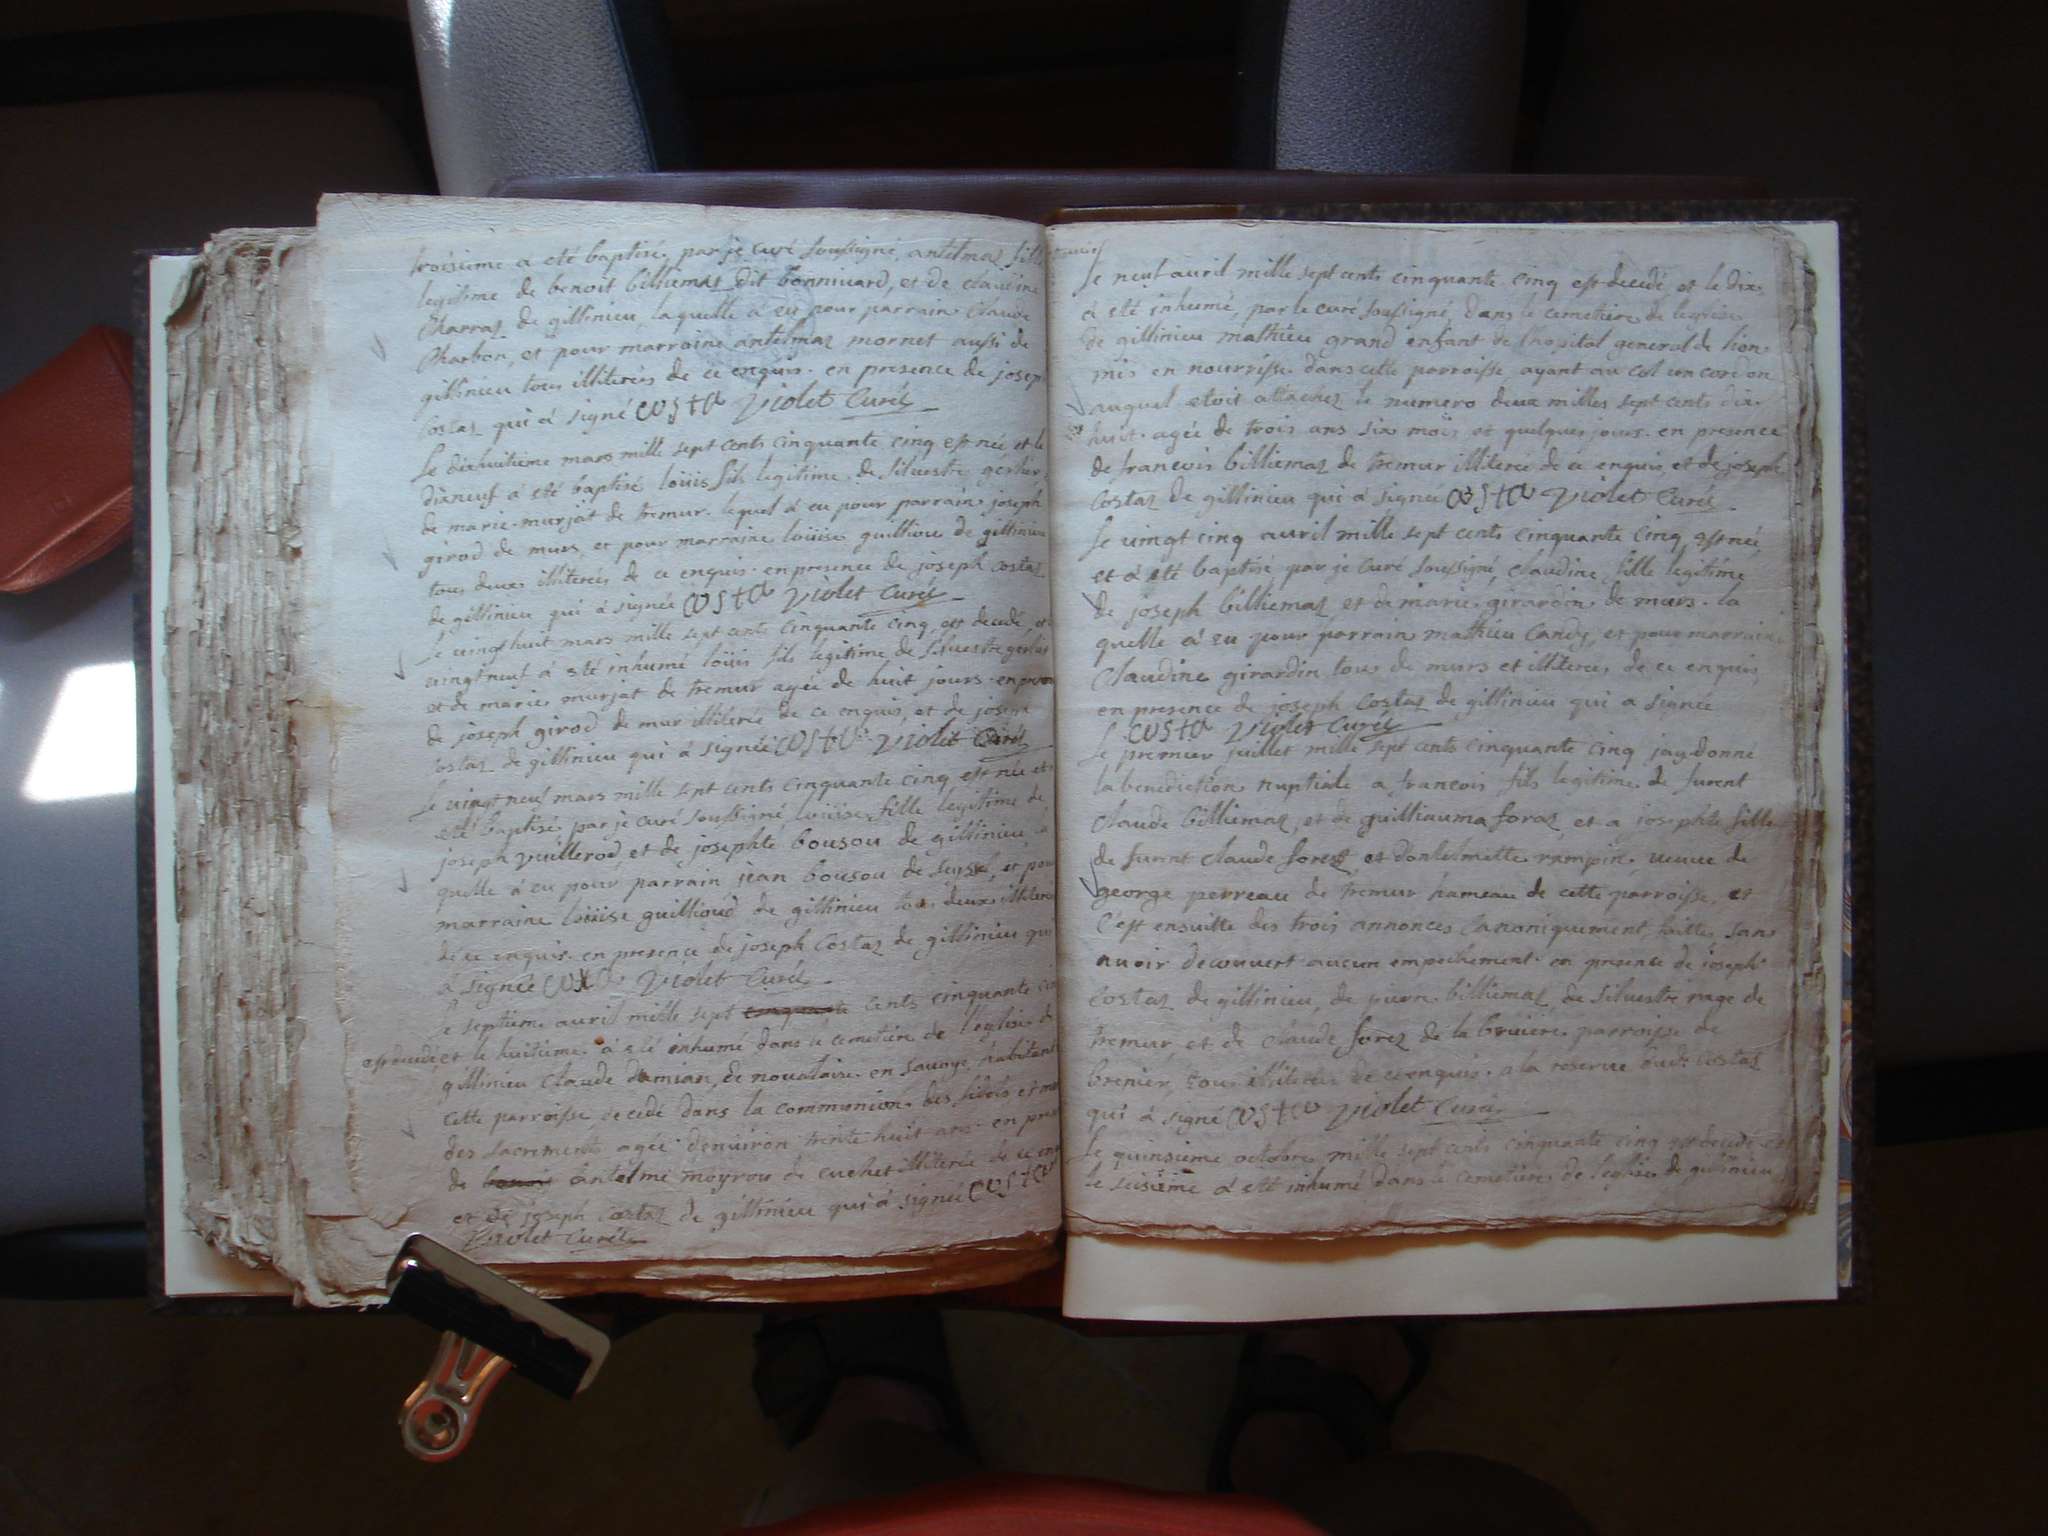 troisieme a eté baptisé par je curé soussigné, antelmaz fille
legitime de benoit billiemaz dit bonnivard, et de claudine
Charraz de gillinieu, laquelle á eu pour parrain claude
Charbon, et pour marraine antelmaz mornet aussi de
gillinieu tous illiterés de ce enquis. en presence de joseph
Costaz qui á signé costa Violet Curé
Le dixhuitieme mars mille sept cents cinquante cinq est née et le
dixneuf á eté baptisé loüis fils legitime de silvestre gerlier
de marie murjat de tremur. lequel á eu pour parrain joseph
girod de murs et pour marraine loüise guilliou de gillinieu
tous deux illiterés de ce enquis. en presence de joseph costaz
de gillinieu qui á signée costa Violet Curé
Le vingthuit mars mille sept cents cinquante cinq, est decedé, et
vingtneuf á eté inhumé loüis fils legitime de silvestre gerlier
et de marie murjat de tremur agée de huit jours. en presence
de joseph girod de mur illiterée de ce enquis, et de joseph
Costaz de gillinieu qui á signée costa Violet Curé
Le vingtneuf mars mille sept cents cinquante cinq est née et
eté baptisé par je curé soussigné, loüise fille legitime de
joseph Vuillerod et de josephte bousou de gillinieu, a
quelle á eu pour parrain jean bousou de seissel, et pour
marraine loüise guillioud de gillinieu tous deux illiterés
de ce enquis. en presence de joseph Costaz de gillinieu qui
á signée costa Violet Curé
Le septieme avril mille sept cinquante cents cinquante
est decedé et le huitieme á eté inhumé dans le cemetiere de l'eglise de
gillinieu Claude damian de novalaise en savoye, habitant
cette parroisse, decedé dans la communion des fidels et muni
des sacrements agée d'environ trente huit ans. en presence
de antelme moyrou de cuchet illiterée de ce enquis
et de joseph costaz de gillinieu qui á signée costa
Violet Curé
Le neuf avril mille sept cents cinquante cinq est decedé, et le dix
á eté inhumé, par le curé soussigné, dans le cemetiere de leglise
de gillinieu mathieu grand enfant de lhopital general de lion
mis en nourrisse dans cette parroisse ayant au col un cordon
auquel etoit attachez le numero deux milles sept cents dix
huit. agée de trois ans six mois et quelques jours. en presence
de francois billiemaz de tremur illiterée de ce enquis, et de joseph
Costaz de gillinieu qui á signée costa Violet Curé
Le vingt cinq avril mille sept cents cinquante cinq, est née
et á eté baptisé par je curé soussigné, claudine fille legitime
de joseph billiemaz et de marie girardin de murs. la
quelle á eu pour parrain mathieu Candy, et pour marraine
Claudine girardin tous de murs et illiterés de ce enquis,
en presence de joseph costaz de gillinieu qui a signée
costa Violet Curé
Le premier juillet mille sept cents cinquante cinq jay donné
la benediction nuptiale a francois fils legitime de furent
Claude billiemaz, et de guilliauma foraz, et a josephte fille
de furent Claude forest, et dantelmette rampin, veuve de
george perreau de tremur hameau de cette parroisse, et
c'est ensuitte des trois annonces canoniquement faittes sans
avoir decouvert aucun empechement. en presence de joseph
Costaz de gillinieu, de pierre billiemaz, de silvestre page de
tremur, et de Claude forez de la bruiere parroisse de
brenier, tous illiterés de ce enquis. a la reserve dudt costaz
qui á signé costa Violet Curé
Le quinsieme octobre mille sept cents cinquante cinq est decedé et
le seisieme á eté inhumé dans le cemetiere de l'eglise de gillinieu